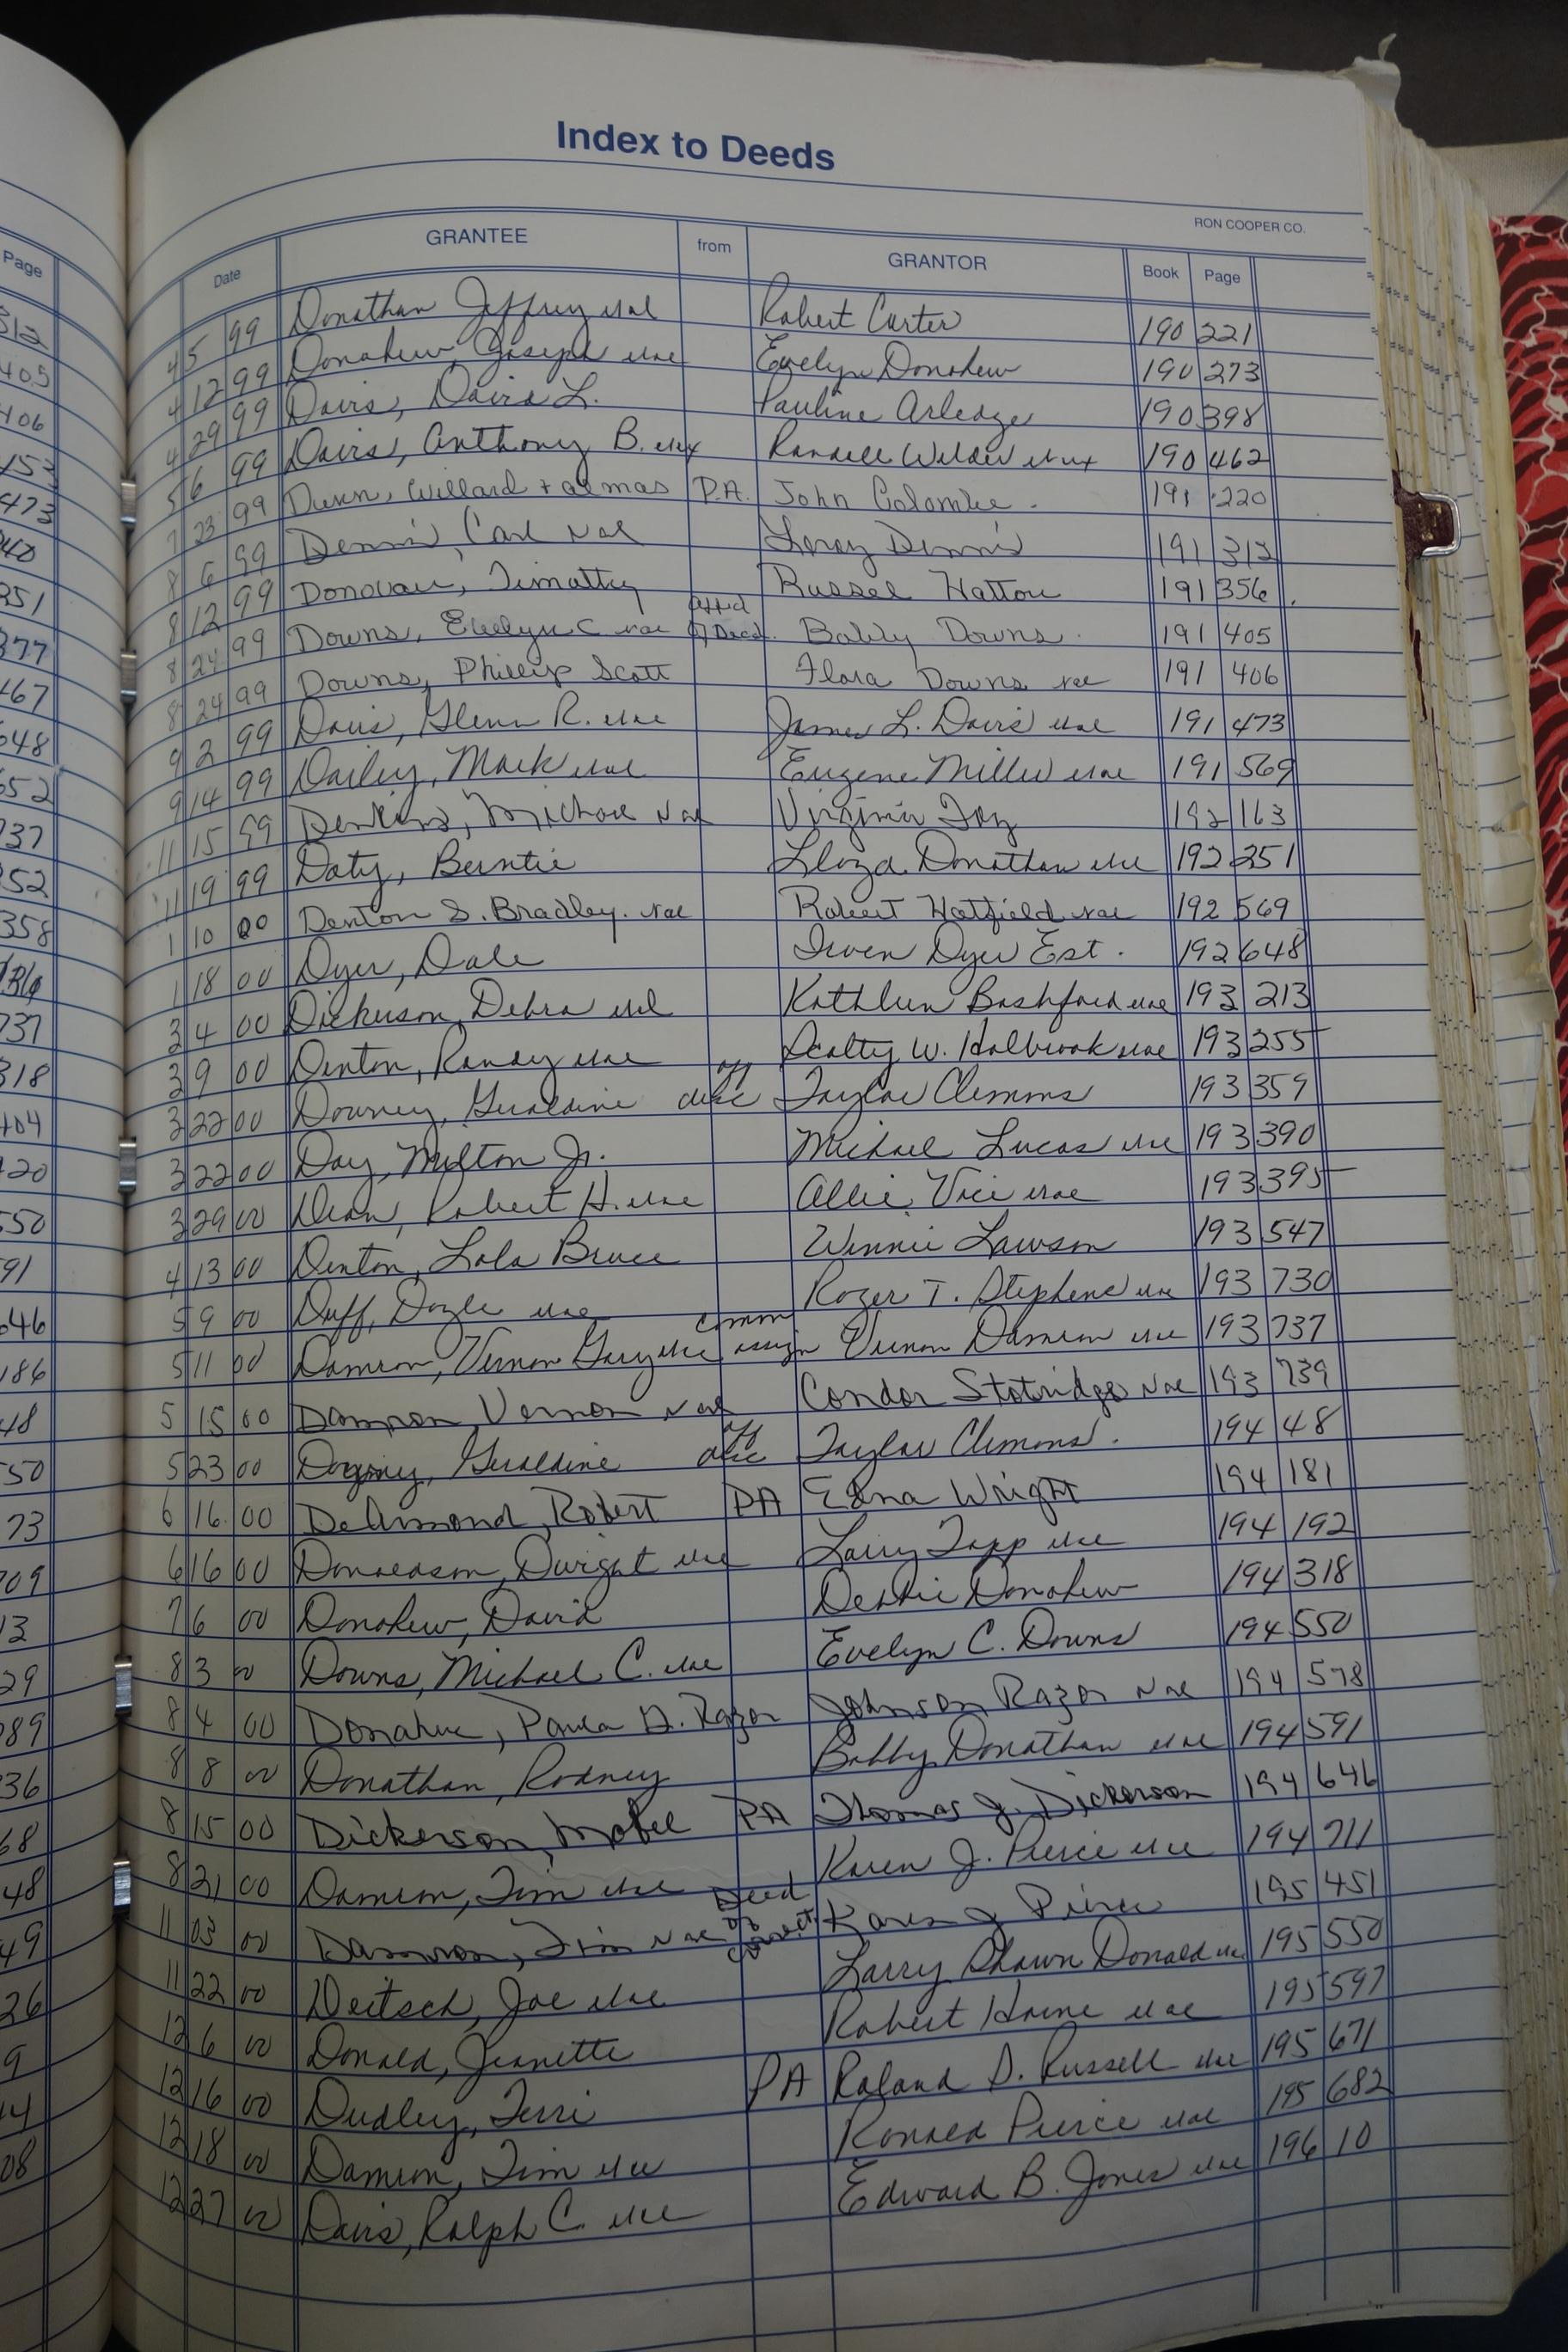 Index to Deeds
RON COOPER CO.
Page
Date GRANTEE from GRANTOR Book Page
312
405
406
153
473
340
351
377
467
548
652
737
352
358
737
318
404
420
550
591
646
186
48
550
73
709
13
29
89
36
68
48
49
26
9
14
08
4 5 99 Donathan Jeffrey Robert Carter 190 221
4 12 99 Donahew, Joseph Evelyn Donohew 190 273
4 29 99 Davis, David L. Pauline Arledge 190 398
5 6 99 Davis, Anthony B. et ux Randell Wilder et ux 190 462
7 23 99 Dunn, Willard + almas P.A. John Colombe 191 220
8 6 99 Dennis, Carl Leroy Dennis 191 313
8 12 99 Donovan, Timothy Russel Hatton 191 356
8 24 99 Downs, Evelyn C Affid of Desc. Bobby Downs 191 405
8 24 99 Downs, Phillip Scott Flora Downs 191 406
9 2 99 Davis, Glenn R. James L. Davis 191 473
9 14 99 Dailey, Mark Eugene Miller 191 569
11 15 99 Michael Virginia 192 163
11 19 99 Doty, Berntie Lloyd Donathan 192 251
1 10 00 Denton S. Bradley Robert Hatfield 192 569
1 18 00 Dyer, Dale Irven Dyer Est. 192 648
3 4 00 Dickerson, Debra Kathleen Bashford 193 213
3 9 00 Denton, Randy Scotty W. Holbrook 193 255
3 22 00 Downey, Geraldine aff desc Taylor Clemons 193 359
3 22 00 Day, Milton Jr. Michael Lucas 193 390
3 29 00 Dean, Robert H. Allie Vice 193 395
4 13 00 Denton, Lola Bruce Winnie Lawson 193 547
5 9 00 Duff, Doyle Roger T. Stephens 193 730
5 11 00 Damron, Vernon Gary comm assign Vernon Damron 193 737
5 15 00 Damron, Vernon Condor Stotridge 193 739
5 23 00 Geraldine aff desc Taylor Clemons. 194 48
6 16 00 DeArmond, Robert PA Edna Wright 194 181
6 16 00 Donaldson, Dwight Larry Tapp 194 192
7 6 00 Donohew, David Debbie Donohew 194 318
8 3 00 Downs, Michael C. Evelyn C. Downs 194 550
8 4 00 Donahue, Paula D. Razor Johnson Razor 194 578
8 8 00 Donathan, Rodney Bobby Donathan 194 591
8 15 00 Dickerson, Mabel PA Thomas J. Dickerson 194 646
8 21 00 Damron, Tim Karen J. Pierce 194 711
11 03 00 Damron, Tim Deed of Correct Karen J Pierce 195 451
11 22 00 Deitsch, Joe Larry Shawn Donald 195 550
12 6 00 Donald, Jeanette Robert Horne 195 597
12 16 00 Dudley, Terri PA Roland D. Russell 195 671
12 18 00 Damron, Tim Ronald Pierce 195 682
12 27 00 Davis, Ralph C. Edward B. Jones 196 10